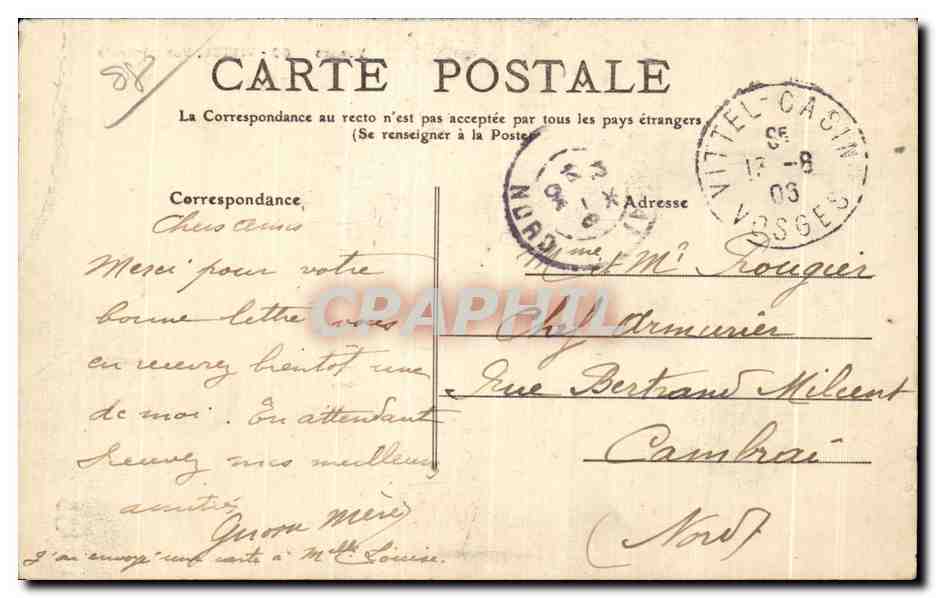 88
CARTE POSTALE
La Correspondance au recto n'est pas acceptée par tous les pays étrangers
(Se renseigner à la Poste
VITTEL-CASIN
VOSGES
-8
06
NORD
Correspondance
Adresse
Chers amis
Merci pour votre
bonne lettre vous
en recevrez bientôt une
de moi. En attendant
Recevez mes meilleurs
amitiés
mère
J'ai envoyé une carte à Mlle Louise.
Mme et Mr Rougier
Chef armurier
Rue Bertrand Milcent
Cambrai
(Nord)
CPAPHIL